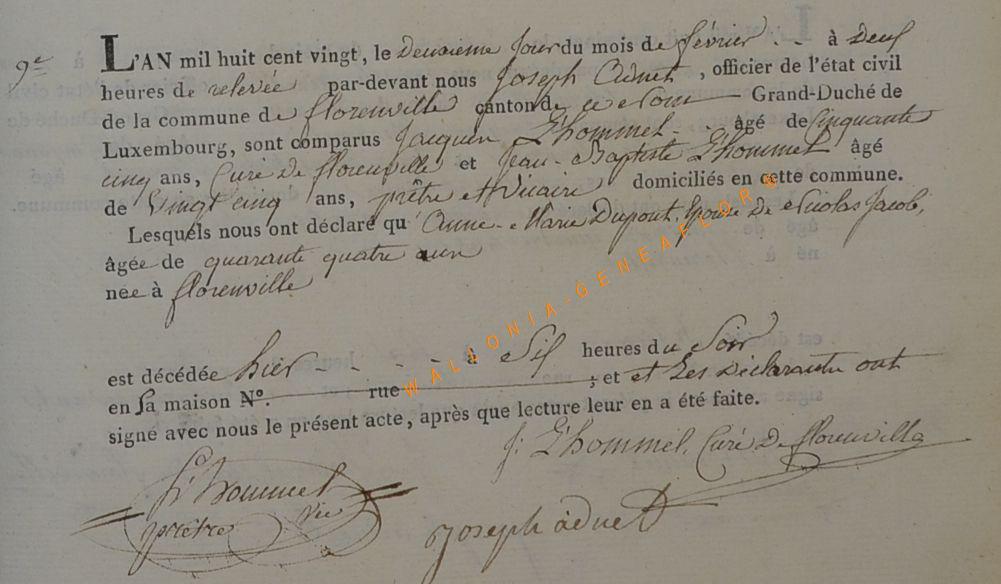 9e
L'AN mil huit cent vingt, le deuxieme Jour du mois de février - - à deux
heures de relevée par-devant nous Joseph Adnet, officier de l'état civil
de la commune de florenville canton de ce nom - Grand-Duché de
Luxembourg, sont comparus Jacques L'hommel - - âgé de Cinquante
cinq ans, Curé De florenville et Jean-Baptiste L'hommel âgé
de Vingt cinq ans, prêtre et Vicaire domiciliés en cette commune.
Lesquels nous ont déclaré qu'Anne-Marie Dupont, Epouse De Nicolas Jacob,
âgée de quarante quatre ans
née à florenville
est décédée hier - - - - à Six heures du Soir
en Sa maison N°. rue ; et et Les Déclarants ont
signé avec nous le présent acte, après que lecture leur en a été faite.
J. L'hommel, Curé De florenville
L'hommel
prêtre vic
joseph adnet
WALLONIA-GENEAFLOR®